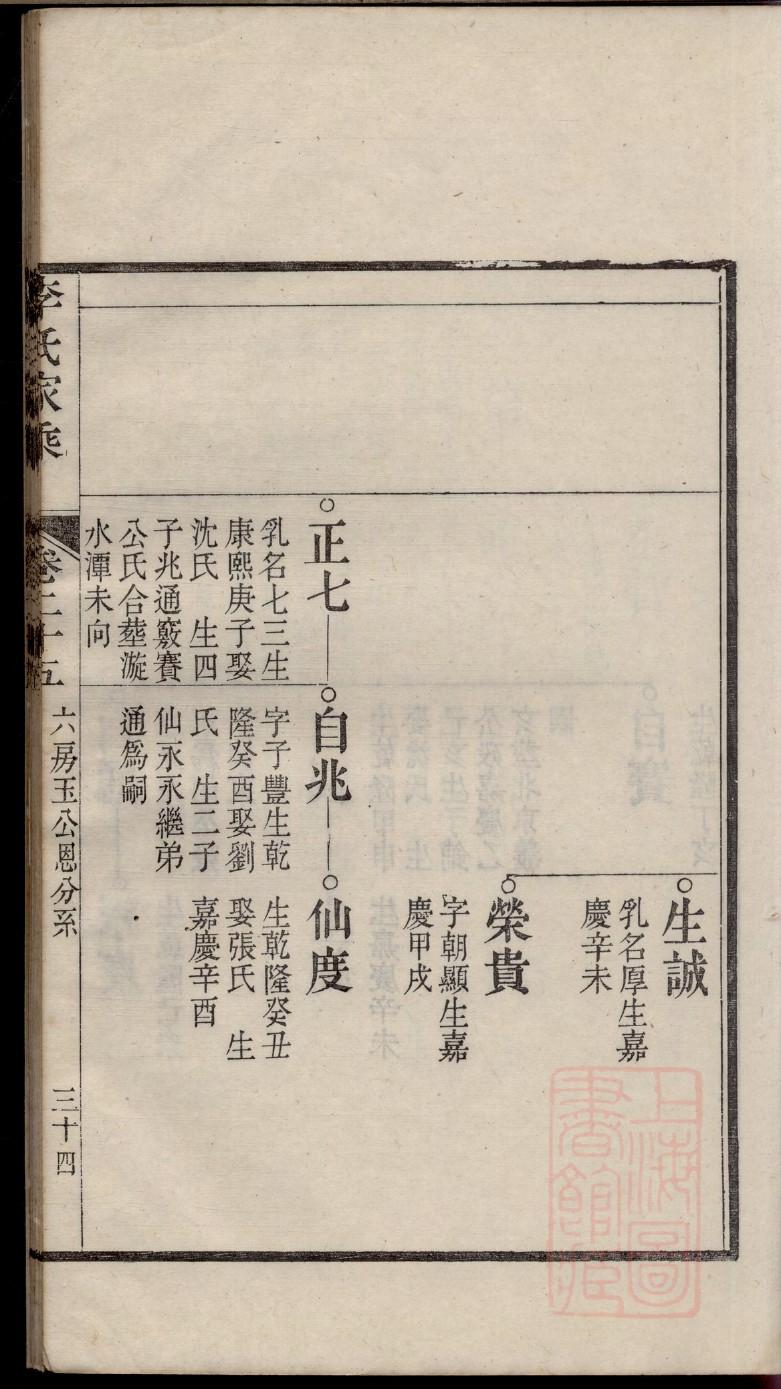 生誠
乳名厚生嘉
慶辛未
榮貴
字朝顯生嘉
慶甲戌
正七
乳名七三生
康熙庚子娶
沈氏 生四
子兆通竅賽
公氏合塟漩
水潭未向
自兆
字子豐生乾
隆癸酉娶劉
氏 生二子
仙永永繼弟
通爲嗣
仙度
生乾隆癸丑
娶張氏 生
嘉慶辛酉
李氏家乘
卷二十五
六房玉公恩分系
三十四
上海圖
書館藏